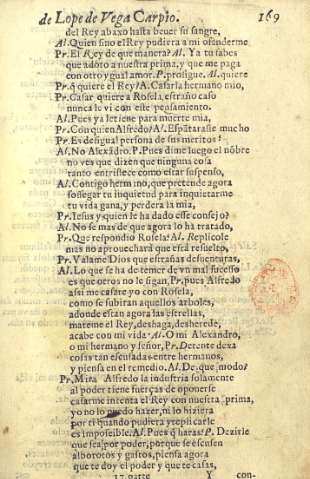 de Lope de Vega Carpio. 169
del Rey abaxo hasta beuer su sangre,
Al. Quien sino el Rey pudiera a mi ofenderme
Pr. El Rey de que manera? Al. Ya tu sabes
que adoro a nuestra prima, y que me paga
con otro ygual amor. P. prosigue. Al. quiere
Pr. q̃ quiere el Rey? A. Casarla hermano mio,
Pr. Casar quiere a Rosela, estraño caso
nunca le vi con este pensamiento.
Al. Pues ya le tiene para muerte mia,
Pr. Con quien Alfredo? Al. Espãtaraste mucho
Pr. Es desigual persona de sus meritos?
Al. No Alexandro. P. Pues dime luego el nõbre
no ves que dizen que ninguna cosa
tanto entristece como estar suspenso,
Al. Contigo hermano, que pretende agora
sossegar tu inquietud para inquietarme
tu vida gana, y perdera la mia,
Pr. Iesus y quien le ha dado esse consejo?
Al. No se mas de que agora lo ha tratado,
Pr. Que respondio Rosela? Al. Replicole
mas no aprouechara que està resuelto,
Pr. Valame Dios que estrañas desuenturas,
Al. Lo que se ha de temer de vn mal sucesso
es que otros no le sigan, Pr. pues Alfredo
assi me casare yo con Rosela,
como se subiran aquellos arboles,
adonde estan agora las estrellas,
mateme el Rey, deshaga, desherede,
acabe con mi vida. Al. O mi Alexandro,
o mi hermano y señor, Pr. Detente dexa
cosas tan escusadas entre hermanos,
y piensa en el remedio. Al. De que modo?
Pr. Mira Alfredo la industria solamente
al poder tiene fuerças de oponerse
casarme intenta el Rey con nuestra prima,
yo no lo puedo hazer, ni lo hiziera
por ti quando pudiera y replicarle
es imposible. Al. Pues q̃ haras? P. Dezirle
que sea por poder, porque se escusen
alborotos y gastos, piensa agora
que te doy el poder y que te casas,
17. parte Y con-